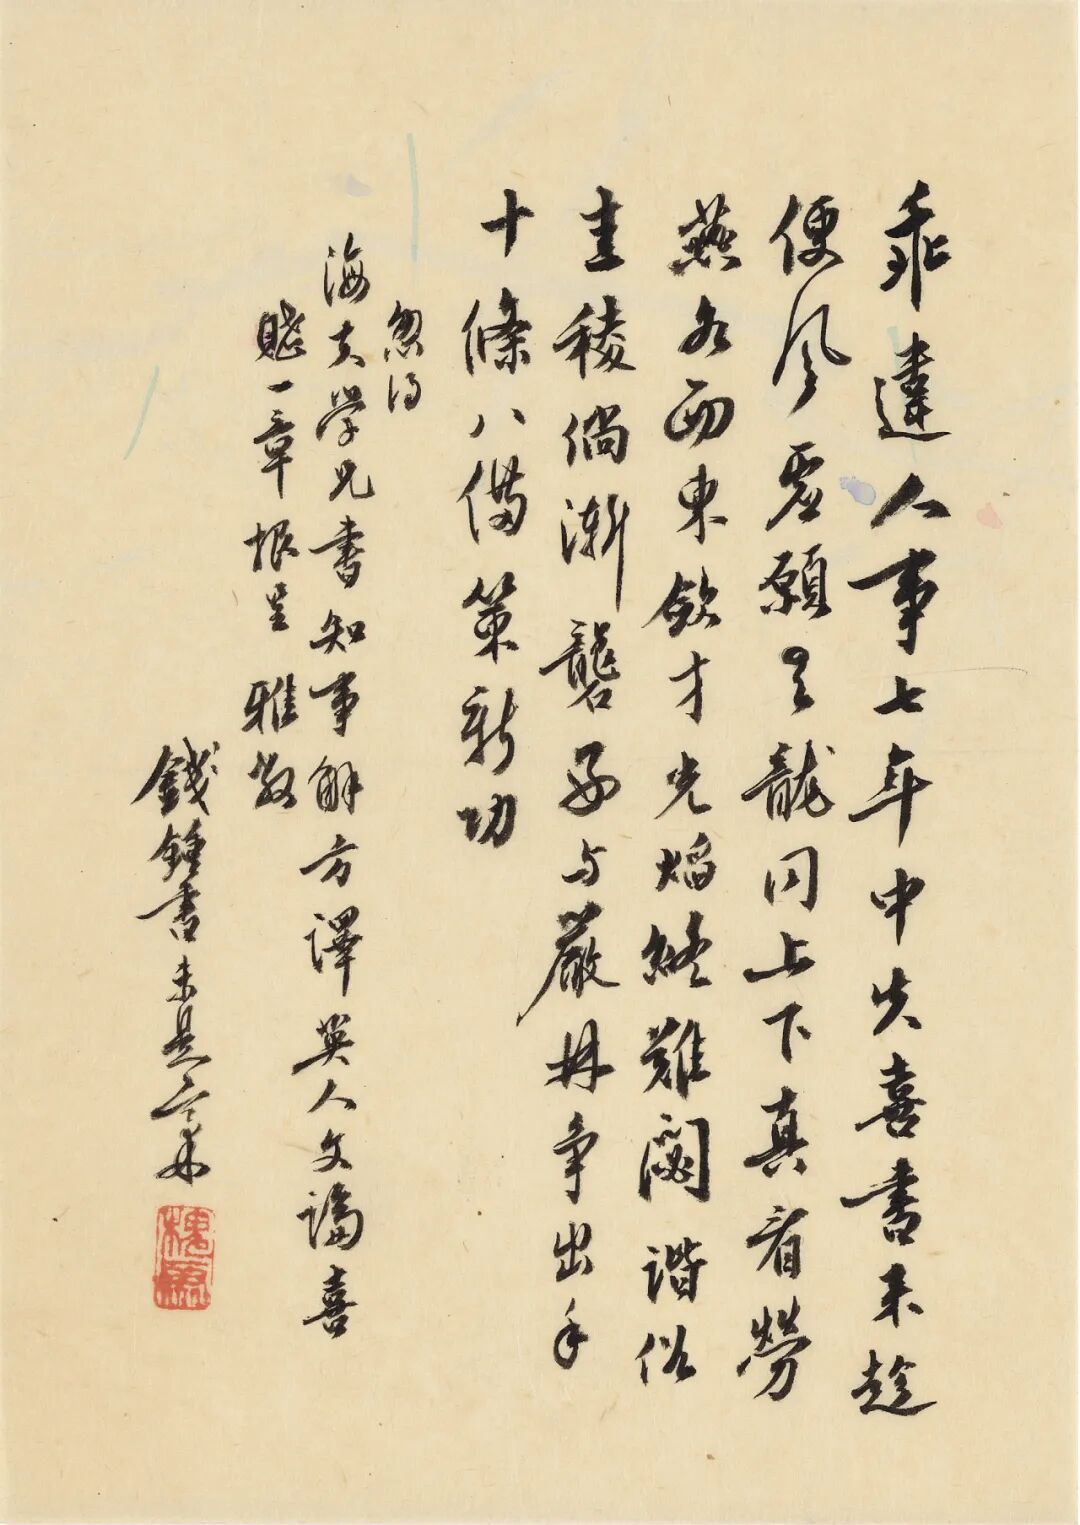 乖違人事七年中失喜書来趁
便風虛願云龍同上下真看勞
燕各西東斂才光焰終難閟諧俗
圭稜倘漸礱子与嚴林爭出手
十條八備策新功
忽得
海夫學兄書知事解方譯英人文論喜
賦一章報呈雅教
錢鍾書未是草
槐聚